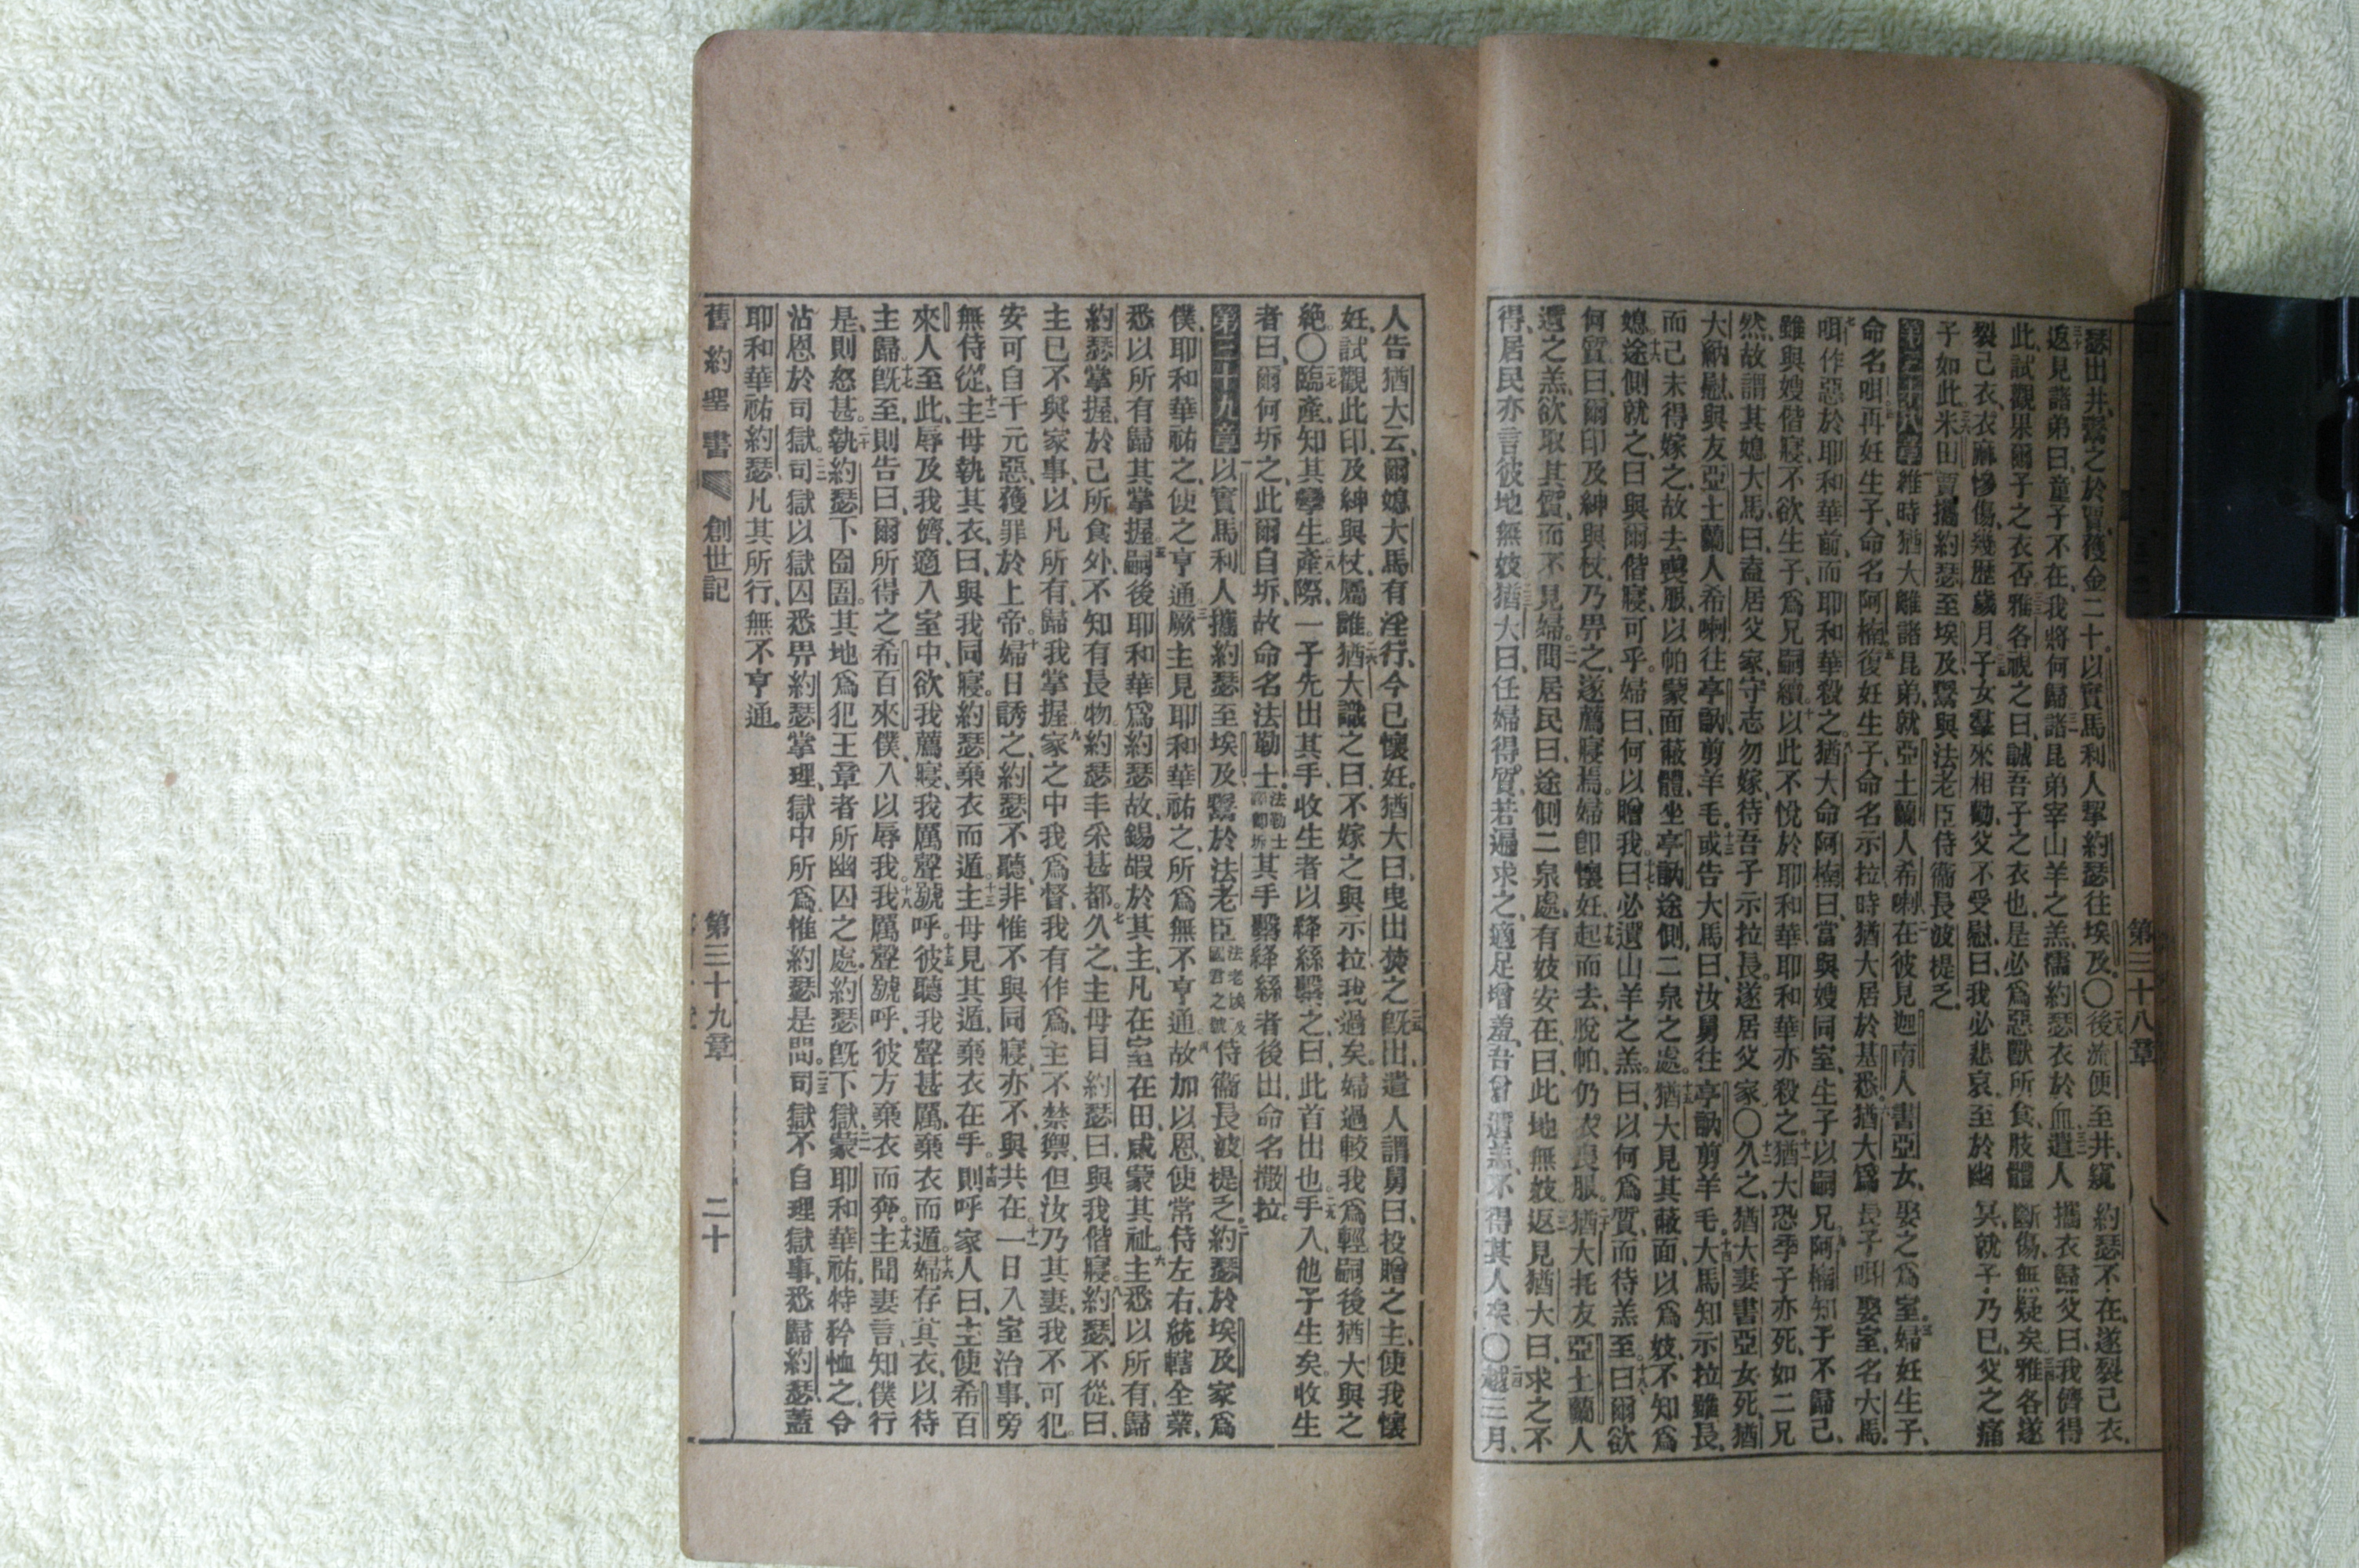 第三十八章
瑟出井、鬻之於賈、獲金二十。以實馬利人挈約瑟往埃及、〇後流便至井、窺約瑟不在、遂裂己衣、
返見諸弟曰、童子不在、我將何歸、諸昆弟宰山羊之羔、濡約瑟衣於血、遣人攜衣歸父、曰、我儕得
此、試觀果爾子之衣否、雅各視之曰、誠吾子之衣也、是必爲惡獸所食、肢體斷傷、無疑矣、雅各遂
裂己衣、衣麻慘傷、幾歷歲月、子女羣來相勸、父不受慰、曰、我必悲哀、至於幽冥、就子乃已、父之痛
子如此、米田賈攜約瑟至埃及、鬻與法老臣侍衞長波提乏。
第三十八章 維時猶大離諸昆弟、就亞土蘭人希喇、在彼見迦南人書亞女、娶之爲室、婦妊生子、
命名咡、再妊生子、命名阿楠、復妊生子、命名示拉、時猶大居於基悉、猶大爲長子咡娶室、名大馬、
咡作惡於耶和華前、而耶和華殺之、猶大命阿楠曰、當與嫂同室、生子以嗣兄、阿楠知子不歸己、
雖與嫂偕寢、不欲生子、爲兄嗣續、以此不悅於耶和華、耶和華亦殺之、猶大恐季子亦死、如二兄
然、故謂其媳大馬曰、盍居父家、守志勿嫁、待吾子示拉長、遂居父家、〇久之、猶大妻書亞女死、猶
大納慰、與友亞土蘭人希喇往亭訥、剪羊毛、或告大馬曰、汝舅往亭訥剪羊毛、大馬知示拉雖長、
而己未得嫁之、故去喪服、以帕蒙面蔽體、坐亭訥途側、二泉之處、猶大見其蔽面、以爲妓、不知爲
媳、途側就之、曰、與爾偕寢可乎、婦曰、何以贈我、曰、必遺山羊之羔、曰、以何爲質、而待羔至、曰、爾欲
何質、曰、爾印及紳與杖、乃畀之、遂薦寢焉、婦卽懷妊、起而去、脫帕、仍衣喪服、猶大托友亞土蘭人
遺之羔、欲取其質、而不見婦、問居民曰、途側二泉處、有妓安在、曰、此地無妓、返見猶大曰、求之不
得、居民亦言彼地無妓、猶大曰、任婦得質、若遍求之、適足增羞、吾曾遺羔、不得其人矣、〇越三月、
人告猶大云、爾媳大馬有淫行、今已懷妊、猶大曰、曳出焚之、旣出、遣人謂舅曰、投贈之主、使我懷
妊、試觀此印、及紳與杖、屬誰、猶大識之曰、不嫁之與示拉、我過矣、婦過較我爲輕、嗣後猶大與之
絕。〇臨產、知其孿生、產際、一子先出其手、收生者以絳絲繫之曰、此首出也、手入、他子生矣。收生
者曰、爾何坼之、此爾自坼、故命名法勒士、法勒士譯卽坼其手繫絳絲者後出、命名撒拉。
第三十九章 以實馬利人攜約瑟至埃及、鬻於法老臣法老埃及國君之號侍衞長波提乏、約瑟於埃及家爲
僕、耶和華祐之、使之亨通、厥主見耶和華祐之、所爲無不亨通、故加以恩、使常侍左右、統轄全業、
悉以所有、歸其掌握、嗣後耶和華爲約瑟故、錫嘏於其主、凡在室在田、咸蒙其祉、主悉以所有、歸
約瑟掌握、於己所食外、不知有長物、約瑟丰采甚都、久之、主母目約瑟曰、與我偕寢、約瑟不從、曰、
主已不與家事、以凡所有、歸我掌握、家之中我爲督、我有作爲、主不禁禦、但汝乃其妻、我不可犯。
安可自干元惡、獲罪於上帝、婦日誘之、約瑟不聽、非惟不與同寢、亦不與共在。一日入室治事、旁
無侍從、主母執其衣、曰、與我同寢。約瑟棄衣而遁、主母見其遁、棄衣在手、則呼家人曰、主使希百
來人至此、辱及我儕、適入室中、欲我薦寢、我厲聲號呼、彼聽我聲甚厲、棄衣而遁、婦存其衣、以待
主歸、旣至、則告曰、爾所得之希百來僕、入以辱我。我厲聲號呼、彼方棄衣而奔。主聞妻言、知僕行
是、則怒甚。執約瑟下囹圄。其地爲犯王章者所幽囚之處、約瑟旣下獄、蒙耶和華祐、特矜恤之、令
沾恩於司獄。司獄以獄囚悉畀約瑟掌理、獄中所爲、惟約瑟是問。司獄不自理獄事、悉歸約瑟、蓋
耶和華祐約瑟、凡其所行、無不亨通。
舊約聖書 創世記 第三十九章 二十